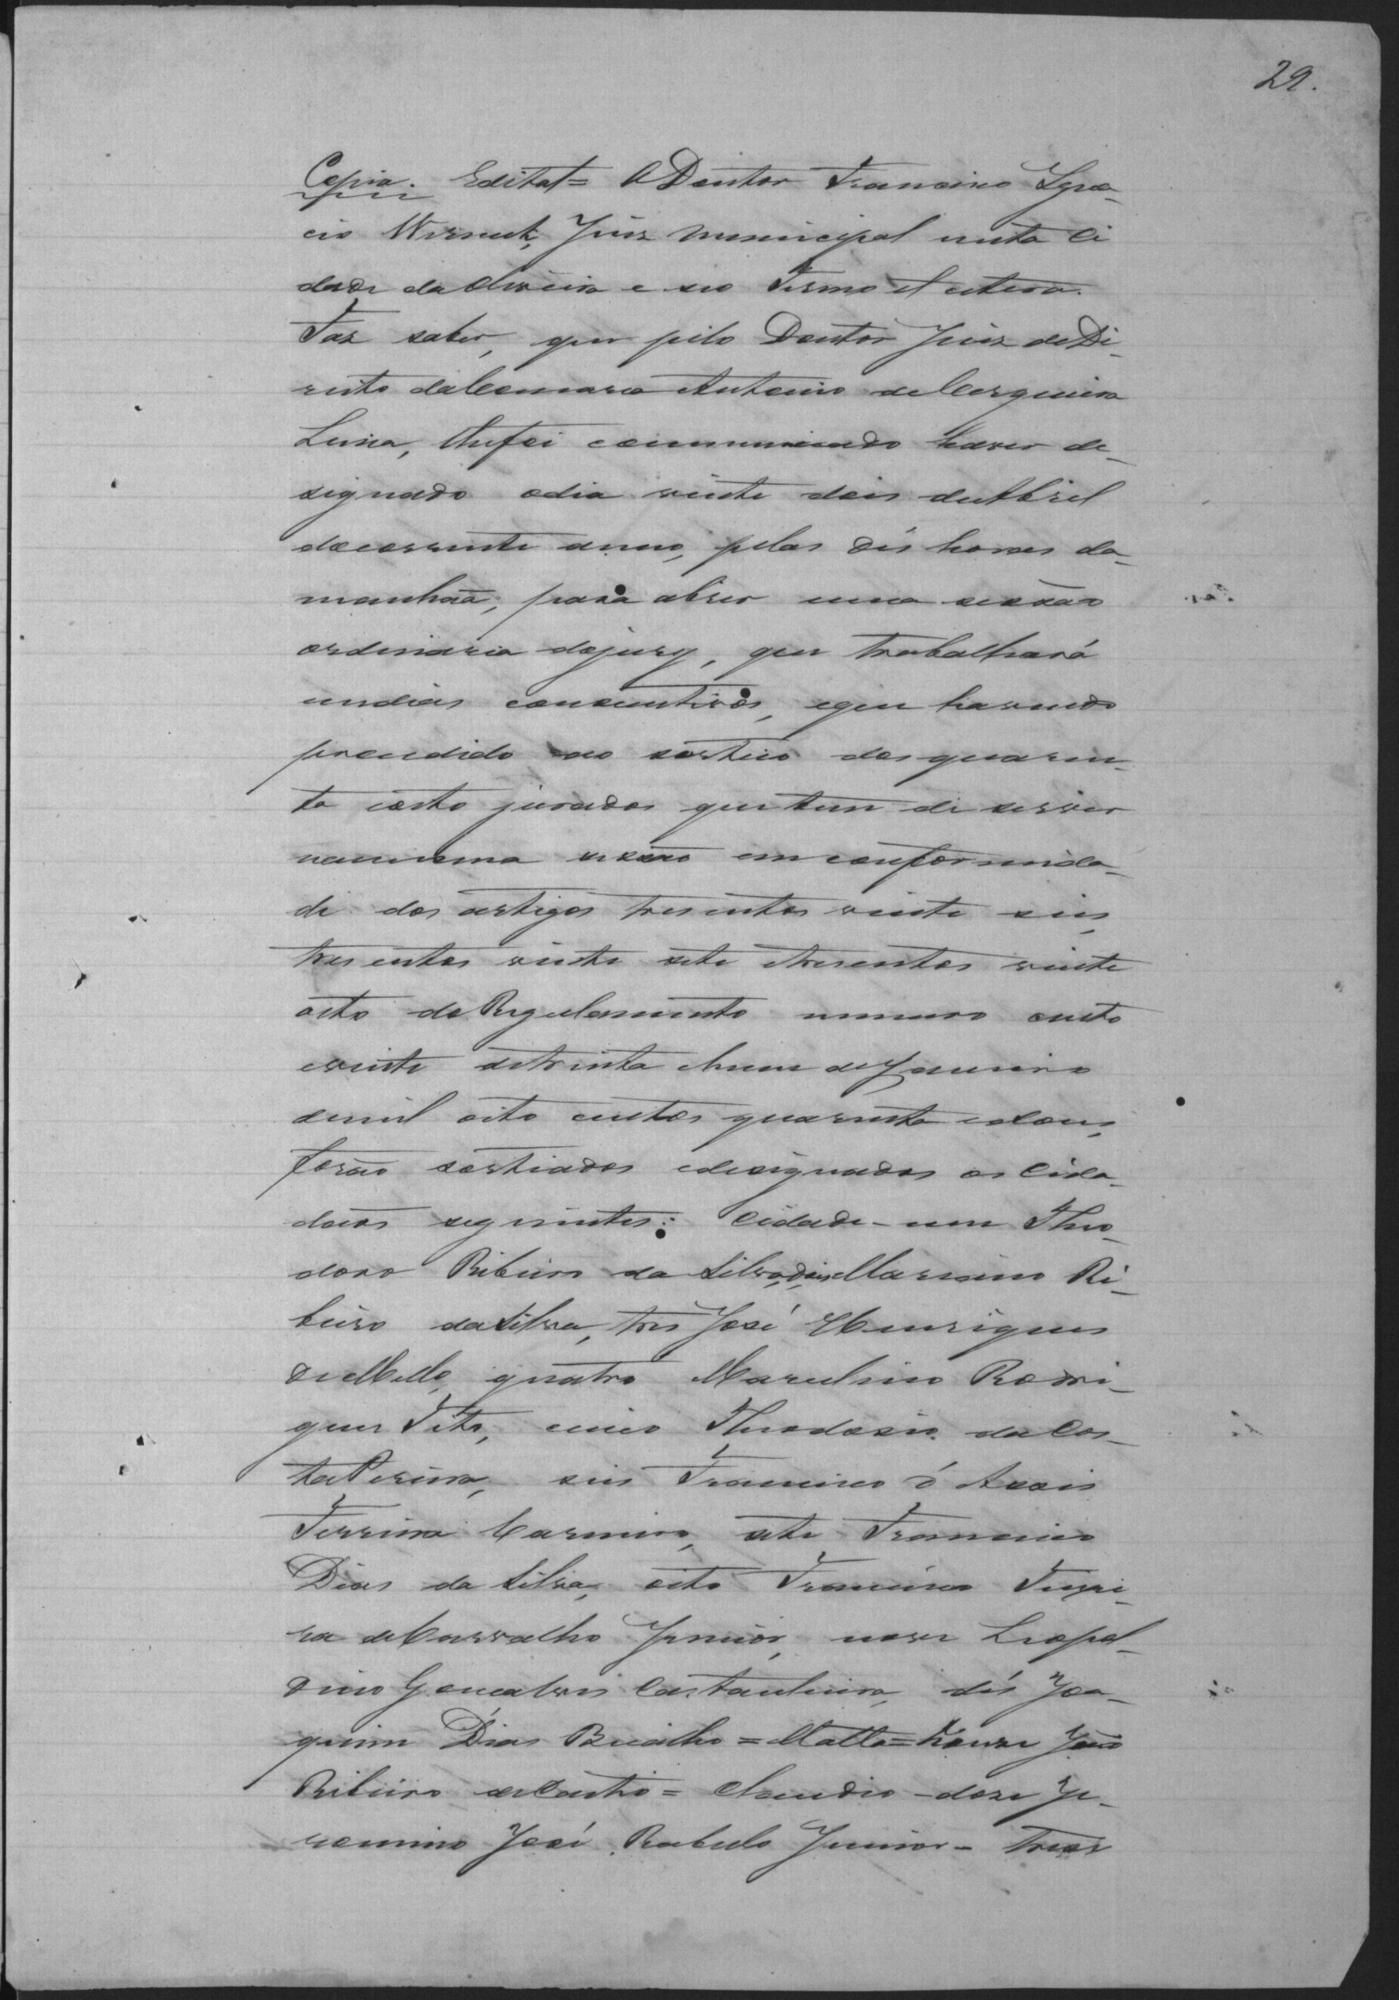 29.
Copia. Edital = O Doutor Francisco Igna-
cio Werneck, Juiz Municipal nesta Ci
dade da Oliveira e seo Termo et cetera.
Faz saber, que pelo Doutor Juiz de Di-
reito da Comarca Antonio de Cerqueira
Lima, lhe foi communicado haver de-
signado o dia vinte dois de Abril
do corrente anno, pelas dés horas da
manhaã, para abrir uma sessão
ordinaria do jury, que trabalhará
em dias consecutivos, e que havendo
procedido ao sorteio dos quaren-
ta e oito jurados que tem de servir
na mesma sessão em conformida-
de dos artigos tresentos vinte seis,
tresentos vinte sete e tresentos vinte
oito do Regulamento numero cento
e vinte de trinta e hum de Janeiro
de mil oito centos quarenta e dous,
forão sortiados e designados os Cida-
daõs seguintes: Cidade - um Theo-
doro Ribeiro da Silva, dois Marciano Ri-
beiro da Silva, tres José Henriques
de Mello, quatro Marcelino Rodri-
gues Tito, cinco Theodosio da Cos-
ta Pereira, seis Francisco d'Assis
Ferreira Carneiro, sete Francisco
Dias da Silva, oito Francisco Teixei-
ra de Carvalho Junior, nove Leopol-
dino Gonçalves Castanheira, dés Joa-
quim Dias Bicalho = Matta = honze João
Ribeiro de Castro = Claudio - dose Je-
ronimo José Rabelo Junior - trese